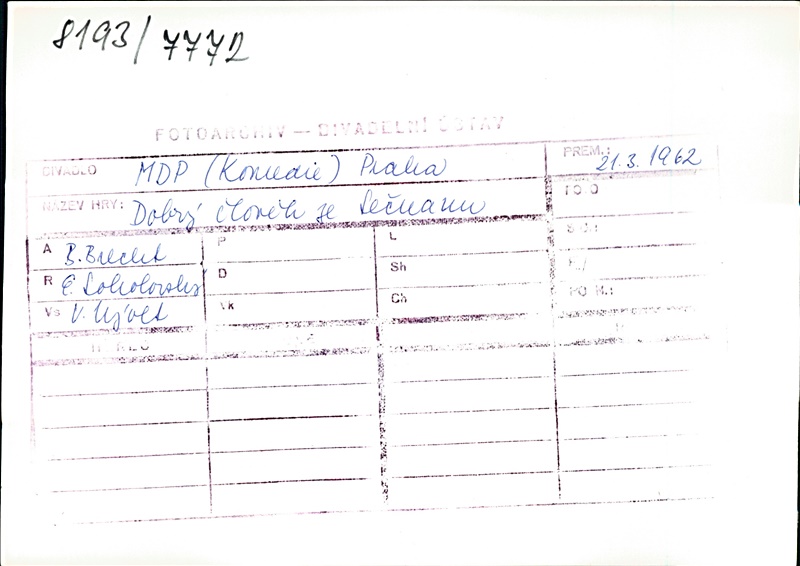 8193/7772
FOTOARCHIV — DIVADELNÍ ÚSTAV
DIVADLO MDP (Komedie) Praha PREM.: 21.3.1962
NÁZEV HRY: Dobrý člověk ze Sečuanu FOTO
A B. Brecht P L
R E. Sokolovský D Sh
Vs V. Nývlt Vk Ch PO M.: